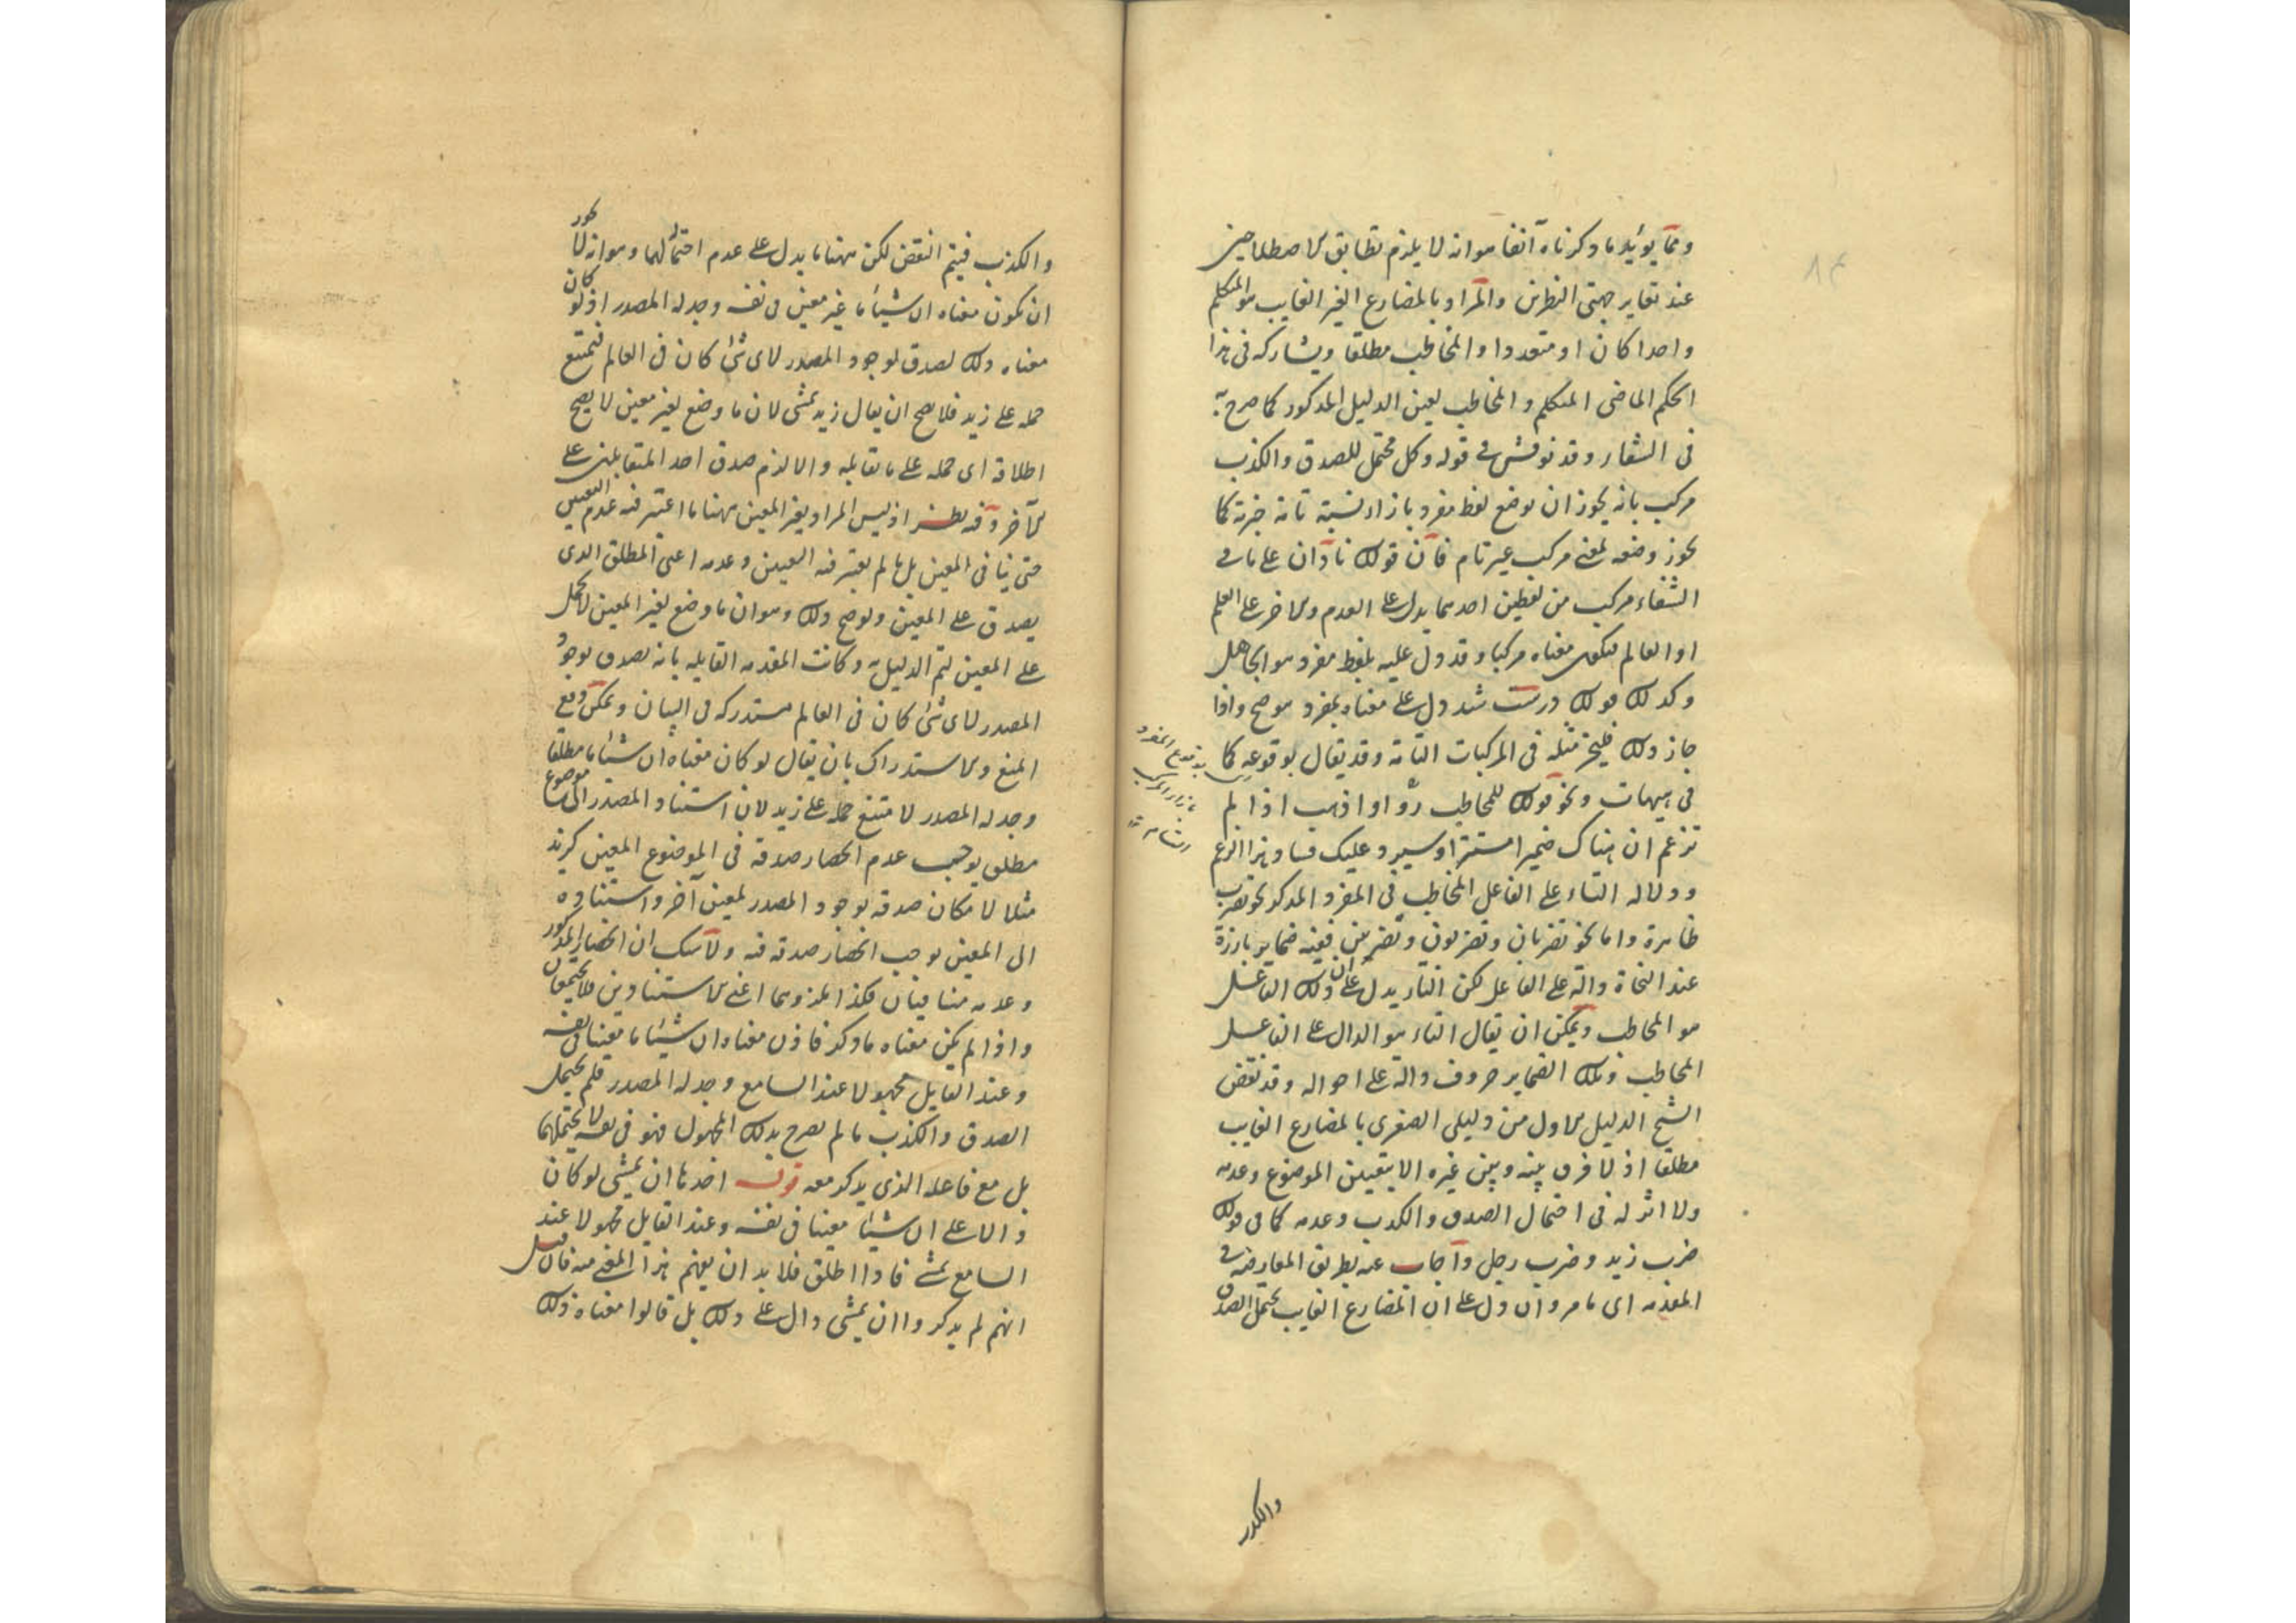 ومما يؤيد ما ذكرناه آنفا هو انه لا يلزم تطابق الاصطلاحين
عند تغاير جهتى النظرين والمراد بالمضارع الغير الغايب هو المتكلم
واحدا كان او متعددا والمخاطب مطلقا ويشاركه فى هذا
الحكم الماضى المتكلم والمخاطب بعين الدليل المذكور كما صرح به
فى الشفاء وقد نوقش فى قوله وكل محتمل للصدق والكذب
مركب بانه يجوز ان يوضع لفظ مفرد بازاء نسبة تامة خبرية كما
يجوز وضعه لمعنى مركب غير تام فان قولك نادان على ما فى
الشفاء مركب من لفظين احدهما يدل على العدم والاخر على العلم
او العالم فيكون معناه مركبا وقد دل عليه بلفظ مفرد هو الجاهل
وكذلك قولك درست شد دل على معناه بمفرد هو صح واذا
جاز ذلك فليجز مثله فى المركبات التامة وقد يقال بوقوعه كما
بوقوع المفرد
بازاء المركب
التام
فى هيهات ونحو قولك للمخاطب رَوْ او اذهب اذا لم
تزعم ان هناك ضميرا مستترا وسيرد عليك فساد هذا الزعم
ودلالة التاء على الفاعل المخاطب فى المفرد المذكر نحو تضرب
ظاهرة واما نحو تضربان وتضربون وتضربين ففيه ضماير بارزة
عند النحاة دالة على الفاعل لكن التاء يدل على ان ذلك الفاعل
هو المخاطب ويمكن ان يقال التاء هو الدال على الفاعل
المخاطب وتلك الضماير حروف دالة على احواله وقد نقض
الشيخ الدليل الاول من دليلى الصغرى بالمضارع الغايب
مطلقا اذ لا فرق بينه وبين غيره الا بتعيين الموضوع وعدمه
ولا اثر له فى احتمال الصدق والكذب وعدمه كما فى قولك
ضرب زيد وضرب رجل واجاب عنه بطريق المعارضة فى
المقدمة اى ما مر وان دل على ان المضارع الغايب يحتمل الصدق
والكذب
والكذب فيتم النقض لكن ههنا ما يدل على عدم احتماله لهما وهو انه لا يجوز
ان يكون معناه ان شيئا ما غير معين فى نفسه وجد له المصدر اذ لو كان
معناه ذلك لصدق لوجود المصدر لاى شئ كان فى العالم فيمتنع
حمله على زيد فلا يصح ان يقال زيد يمشى لان ما وضع لغير معين لا يصح
اطلاقه اى حمله على ما يقابله والا لزم صدق احد المتقابلين على
الآخر وفيه نظر اذ ليس المراد بغير المعين ههنا ما اعتبر فيه عدم التعيين
حتى ينافى المعين بل ما لم يعتبر فيه التعيين وعدمه اعنى المطلق الذى
يصدق على المعين ولو صح ذلك وهو ان ما وضع لغير المعين لا يحمل
على المعين لتم الدليل به وكانت المقدمة القايلة بانه يصدق بوجود
المصدر لاى شئ كان فى العالم مستدركة فى البيان ويمكن دفع
المنع والاستدراك بان يقال لو كان معناه ان شيئا ما مطلقا
وجد له المصدر لامتنع حمله على زيد لان استناد المصدر الى موضوع
مطلق يوجب عدم انحصار صدقه فى الموضوع المعين كزيد
مثلا لامكان صدقه بوجود المصدر لمعين آخر واستناده
الى المعين يوجب انحصار صدقه فيه ولا شك ان انحصار المذكور
وعدمه متنافيان فكذا ملزوهما اعنى الاستنادين فلا يجتمعان
واذا لم يكن معناه ما ذكر فاذن معناه ان شيئا ما معينا فى نفسه
وعند القايل مجهولا عند السامع وجد له المصدر فلم يحتمل
الصدق والكذب ما لم يصرح بذلك المجهول فهو فى نفسه لا يحتملهما
بل مع فاعله الذى يذكر معه قوله احدها ان يمشى لو كان
دالا على ان شيئا معينا فى نفسه وعند القايل مجهولا عند
السامع يمشى فاذا اطلق فلا بد ان يفهم هذا المعنى منه فان قيل
انهم لم يذكروا ان يمشى دال على ذلك بل قالوا معناه ذلك